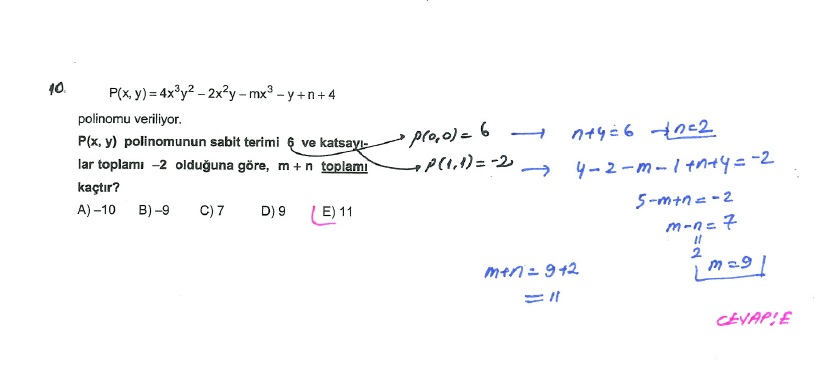 10.
P(x, y) = 4x³y² – 2x²y – mx³ – y + n + 4
polinomu veriliyor.
P(x, y) polinomunun sabit terimi 6 ve katsayı-
lar toplamı –2 olduğuna göre, m + n toplamı
kaçtır?
A) –10 B) –9 C) 7 D) 9 E) 11
P(0,0) = 6 → n+4=6 → n=2
P(1,1) = -2 → 4-2-m-1+n+4=-2
5-m+n=-2
m-n=7
"
2
m=9
m+n=9+2
=11
CEVAP:E